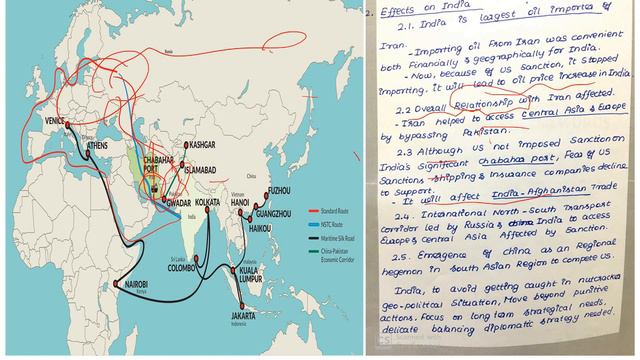 Russia
VENICE
Greece
ATHENS
KASHGAR
CHABAHAR
PORT
ISLAMABAD
China
GWADAR
Pakistan
KOLKATA
India
Vietnam
HANOI
FUZHOU
GUANGZHOU
HAIKOU
Sri Lanka
COLOMBO
Malaysia
KUALA
LUMPUR
NAIROBI
Kenya
JAKARTA
Indonesia
Standard Route
NSTC Route
Maritime Silk Road
China-Pakistan
Economic Corridor
2. Effects on India
2.1. India is largest oil importer of
Iran.
- Importing oil From Iran was convenient
both Financially & geographically for India.
- Now, because of US Sanction, it stopped
importing. it will lead to oil price increase in India
2.2 Overall Relationship with Iran affected.
- Iran helped to access Central Asia & Europe
by bypassing Pakistan.
2.3 Although US not imposed Sanction on
India's Significant chabahar post, Fear of US
Sanctions shipping & Insurance companies decline
to support.
- It will affect India-Afghanistan Trade
2.4. International North-South Transport
corridor led by Russia & India to access
Europe & Central Asia Affected by Sanction.
2.5. Emergence of china as an Regional
hegemon in South Asian Region to compete us.
India, to avoid getting caught in nutcracker
geo-political Situation, Move beyond punitive
actions. Focus on long term strategical needs,
delicate balancing diplomatic strategy needed.
CS Scanned with